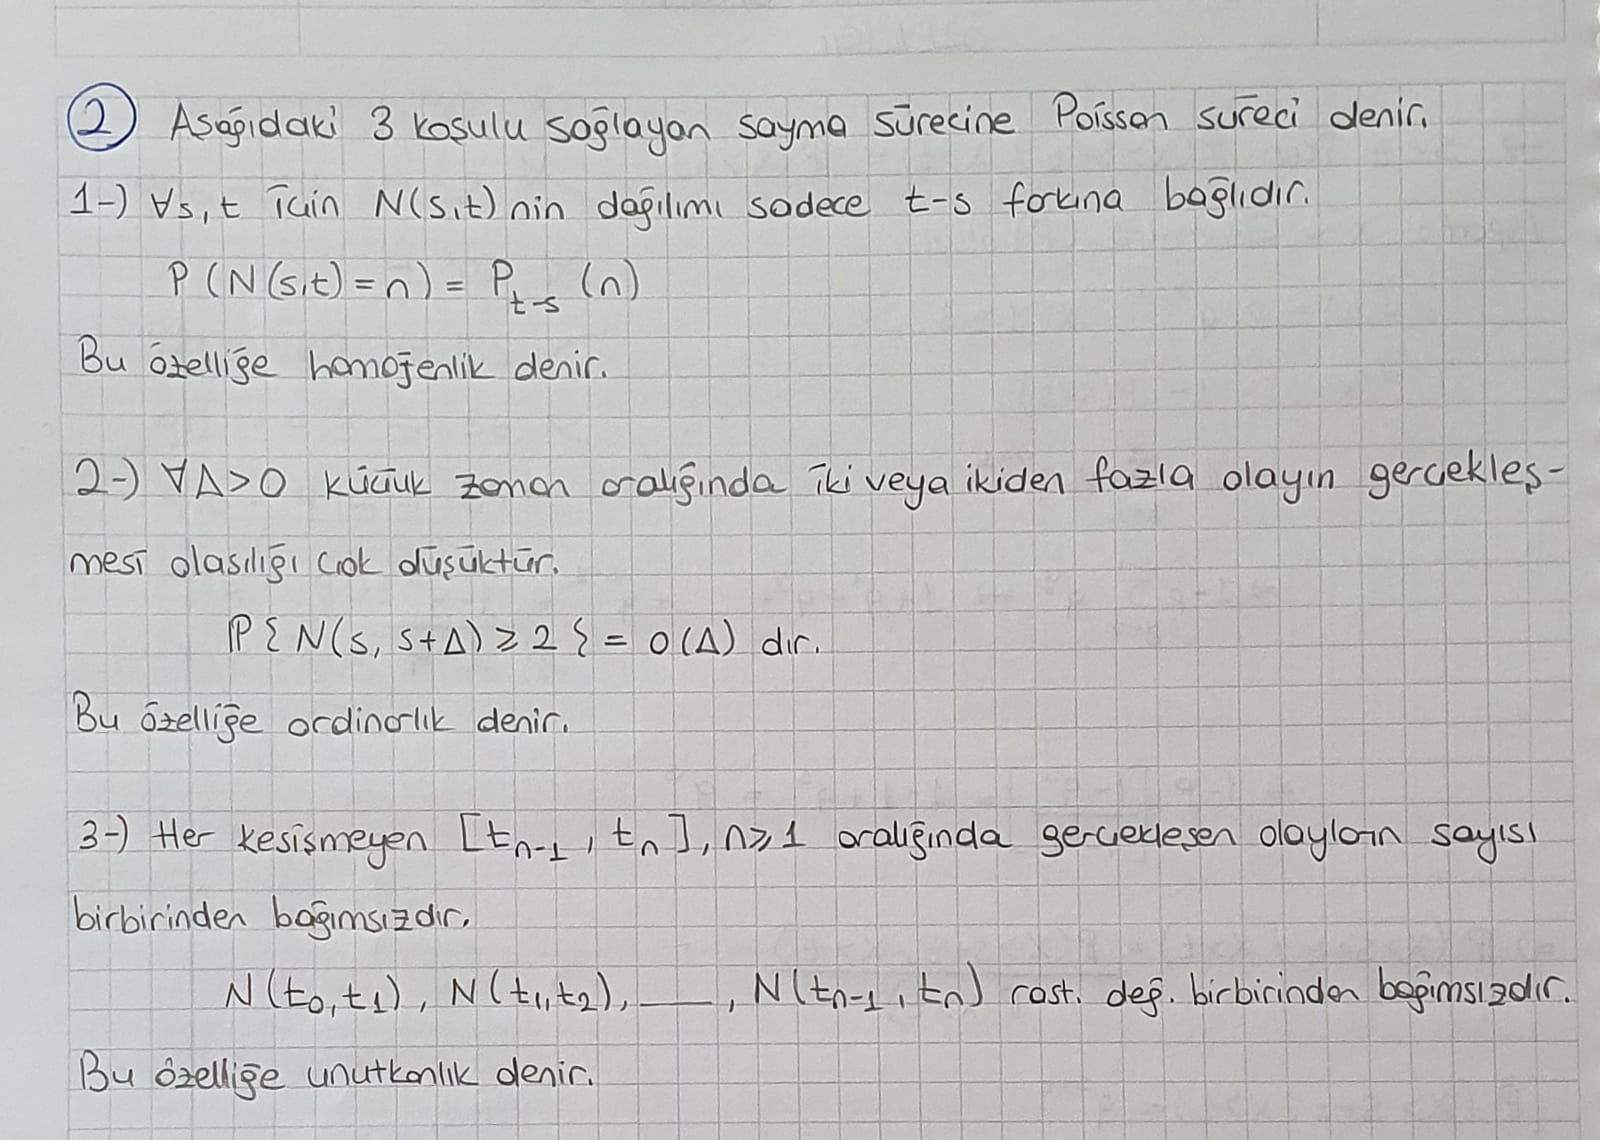 ② Aşağıdaki 3 koşulu sağlayan sayma sürecine Poisson süreci denir.
1-) ∀s,t için N(s,t) nin dağılımı sadece t-s farkına bağlıdır.
P(N(s,t)=n) = P_{t-s}(n)
Bu özelliğe homojenlik denir.
2-) ∀Δ>0 küçük zaman aralığında iki veya ikiden fazla olayın gerçekleş-
mesi olasılığı çok düşüktür.
ℙ{N(s, s+Δ) ≥ 2} = o(Δ) dır.
Bu özelliğe ordinarlık denir.
3-) Her kesişmeyen [t_{n-1}, t_n], n≥1 aralığında gerçekleşen olayların sayısı
birbirinden bağımsızdır.
N(t_0,t_1), N(t_1,t_2), —, N(t_{n-1}, t_n) rast. değ. birbirinden bağımsızdır.
Bu özelliğe unutkanlık denir.